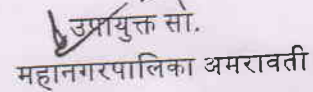 उपायुक्त सो.
महानगरपालिका अमरावती